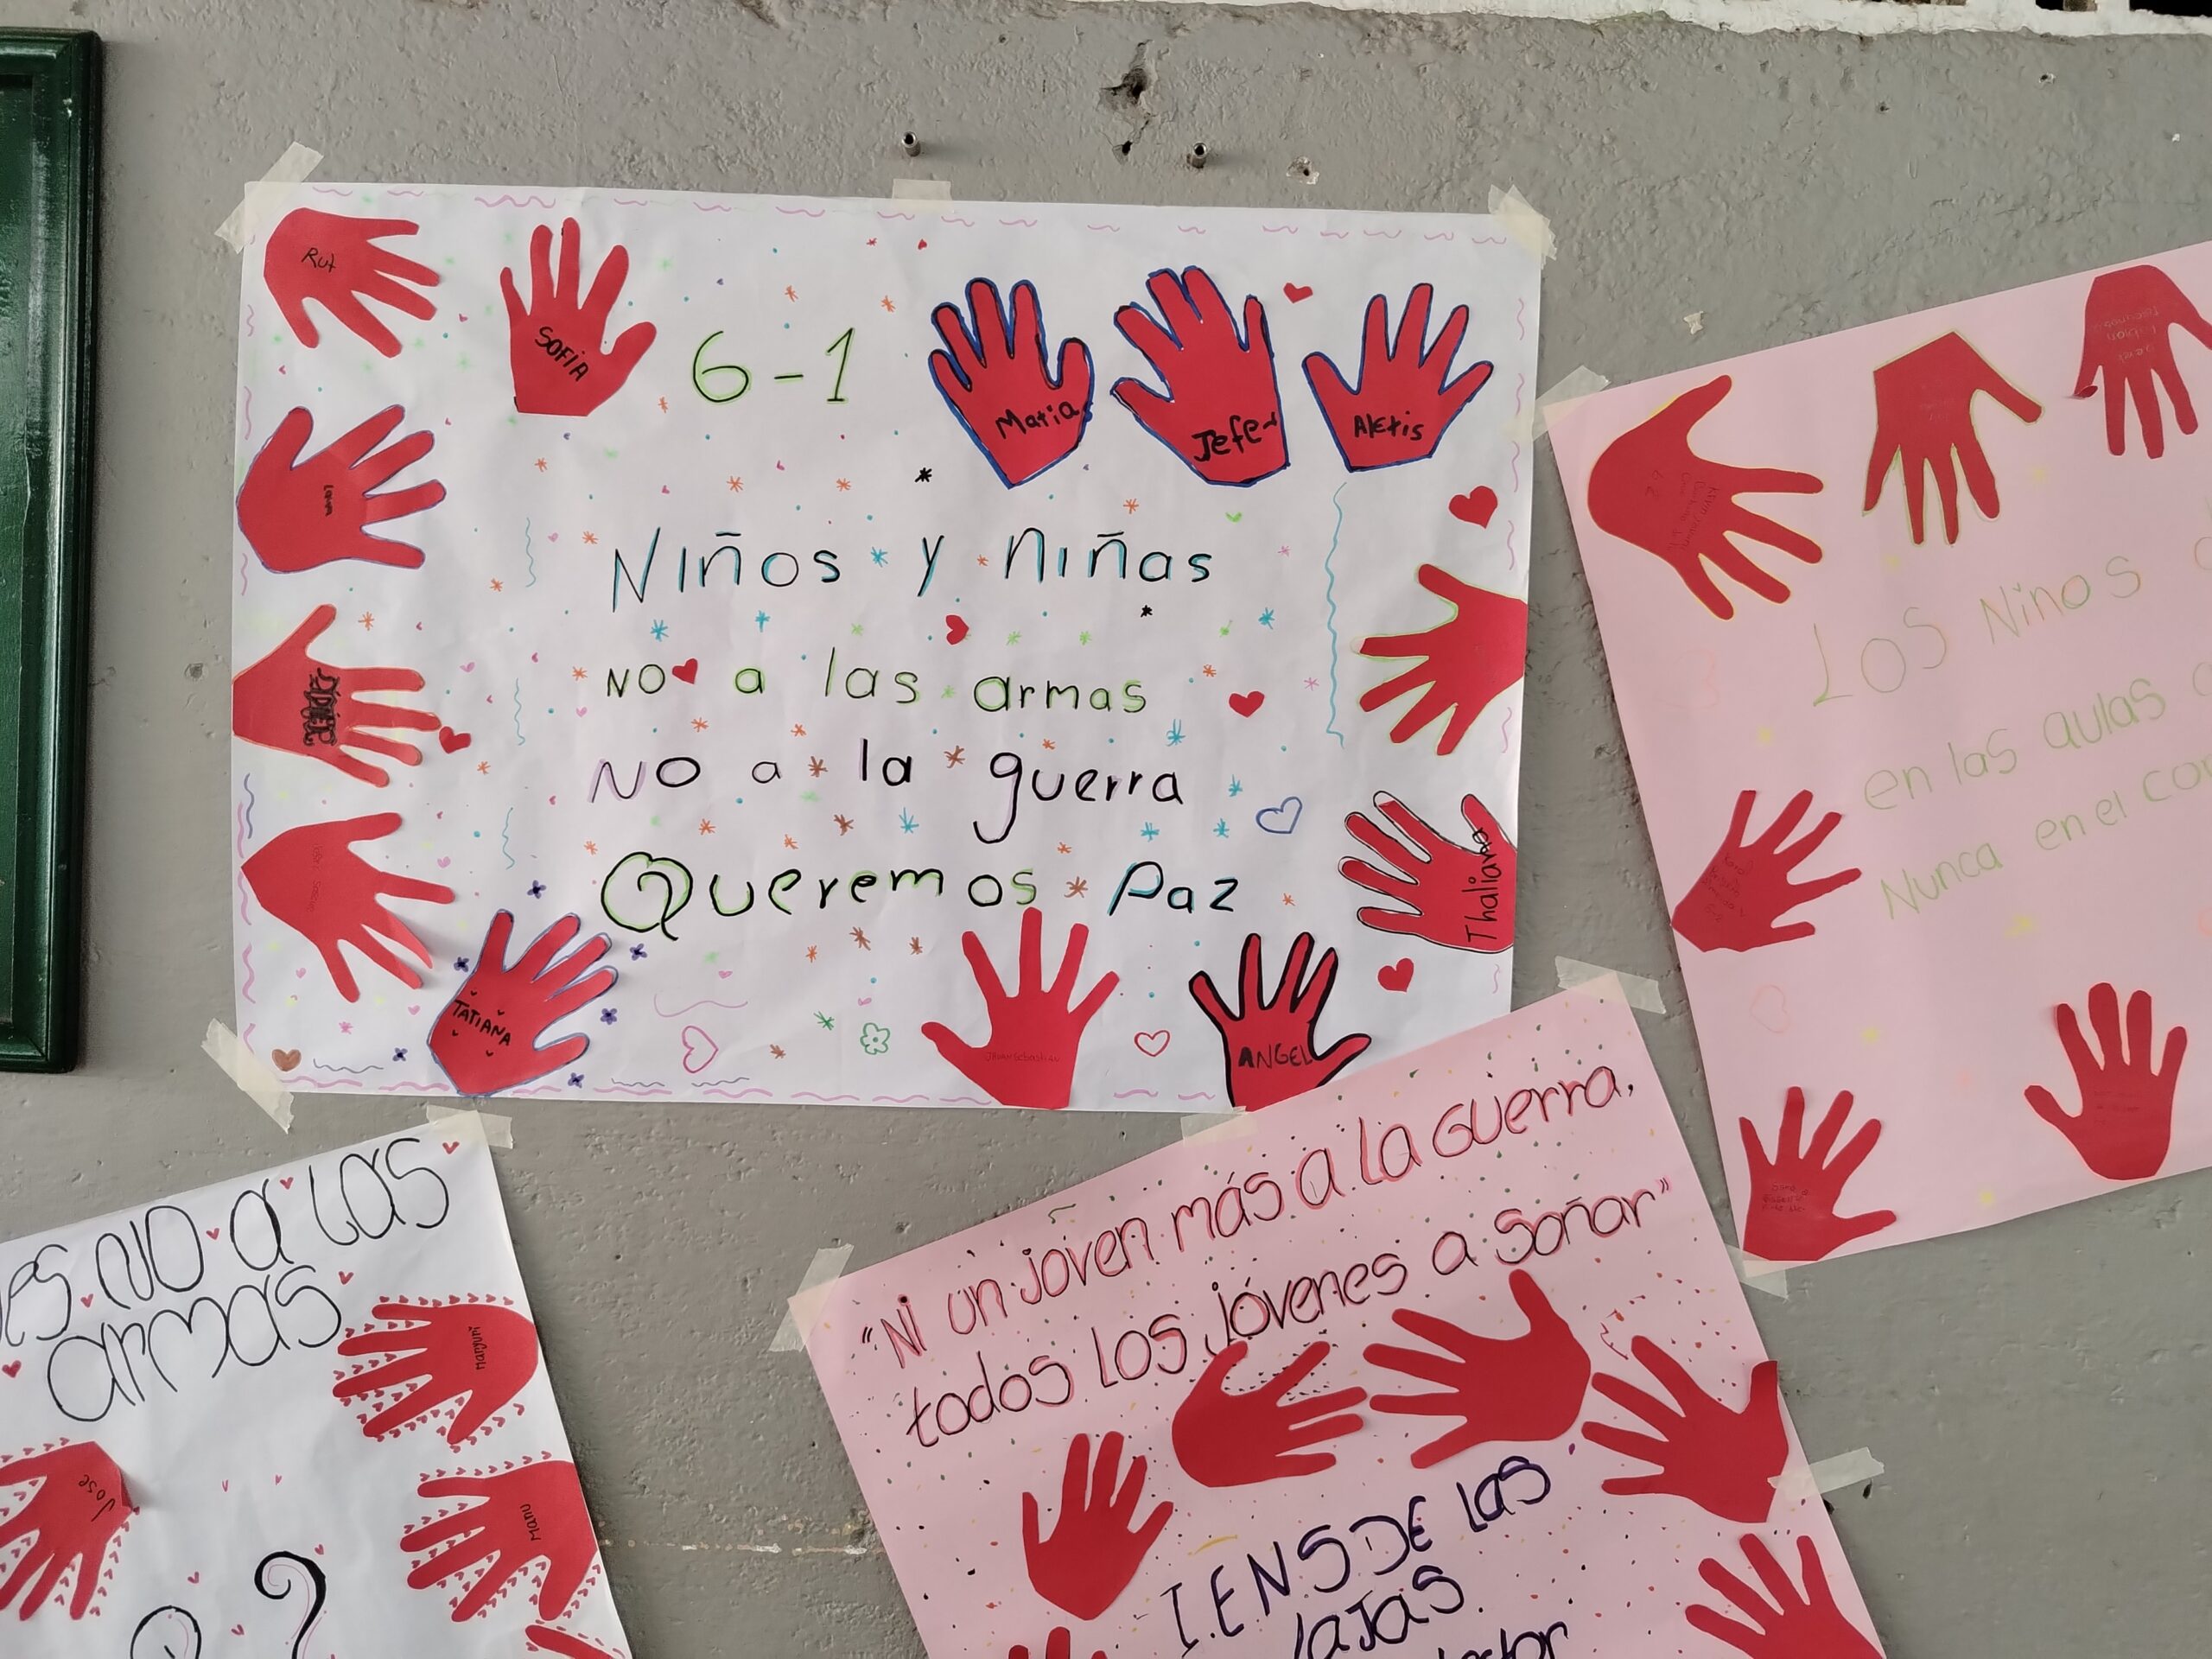 Rut
SOFIA
6-1
Matia
Jefer
Alexis
Niños y niñas
NO a las armas
NO a la guerra
Queremos Paz
Thaliana
TATIANA
ANGEL
LOS Niños
en las aulas
Nunca en el
NO a las
armas
maryuri
manu
Jose
"Ni un joven más a la guerra,
todos los jóvenes a soñar"
I.E N S DE LAS
LAJAS